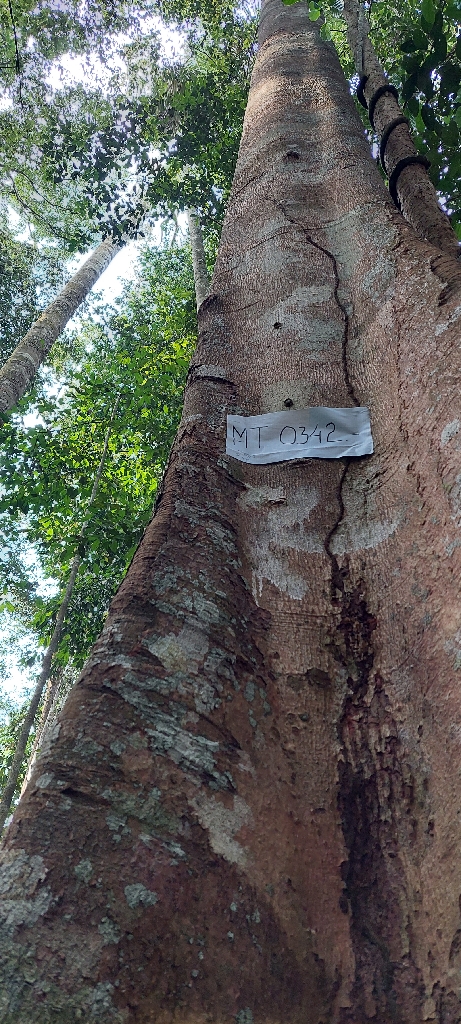 MT 0342